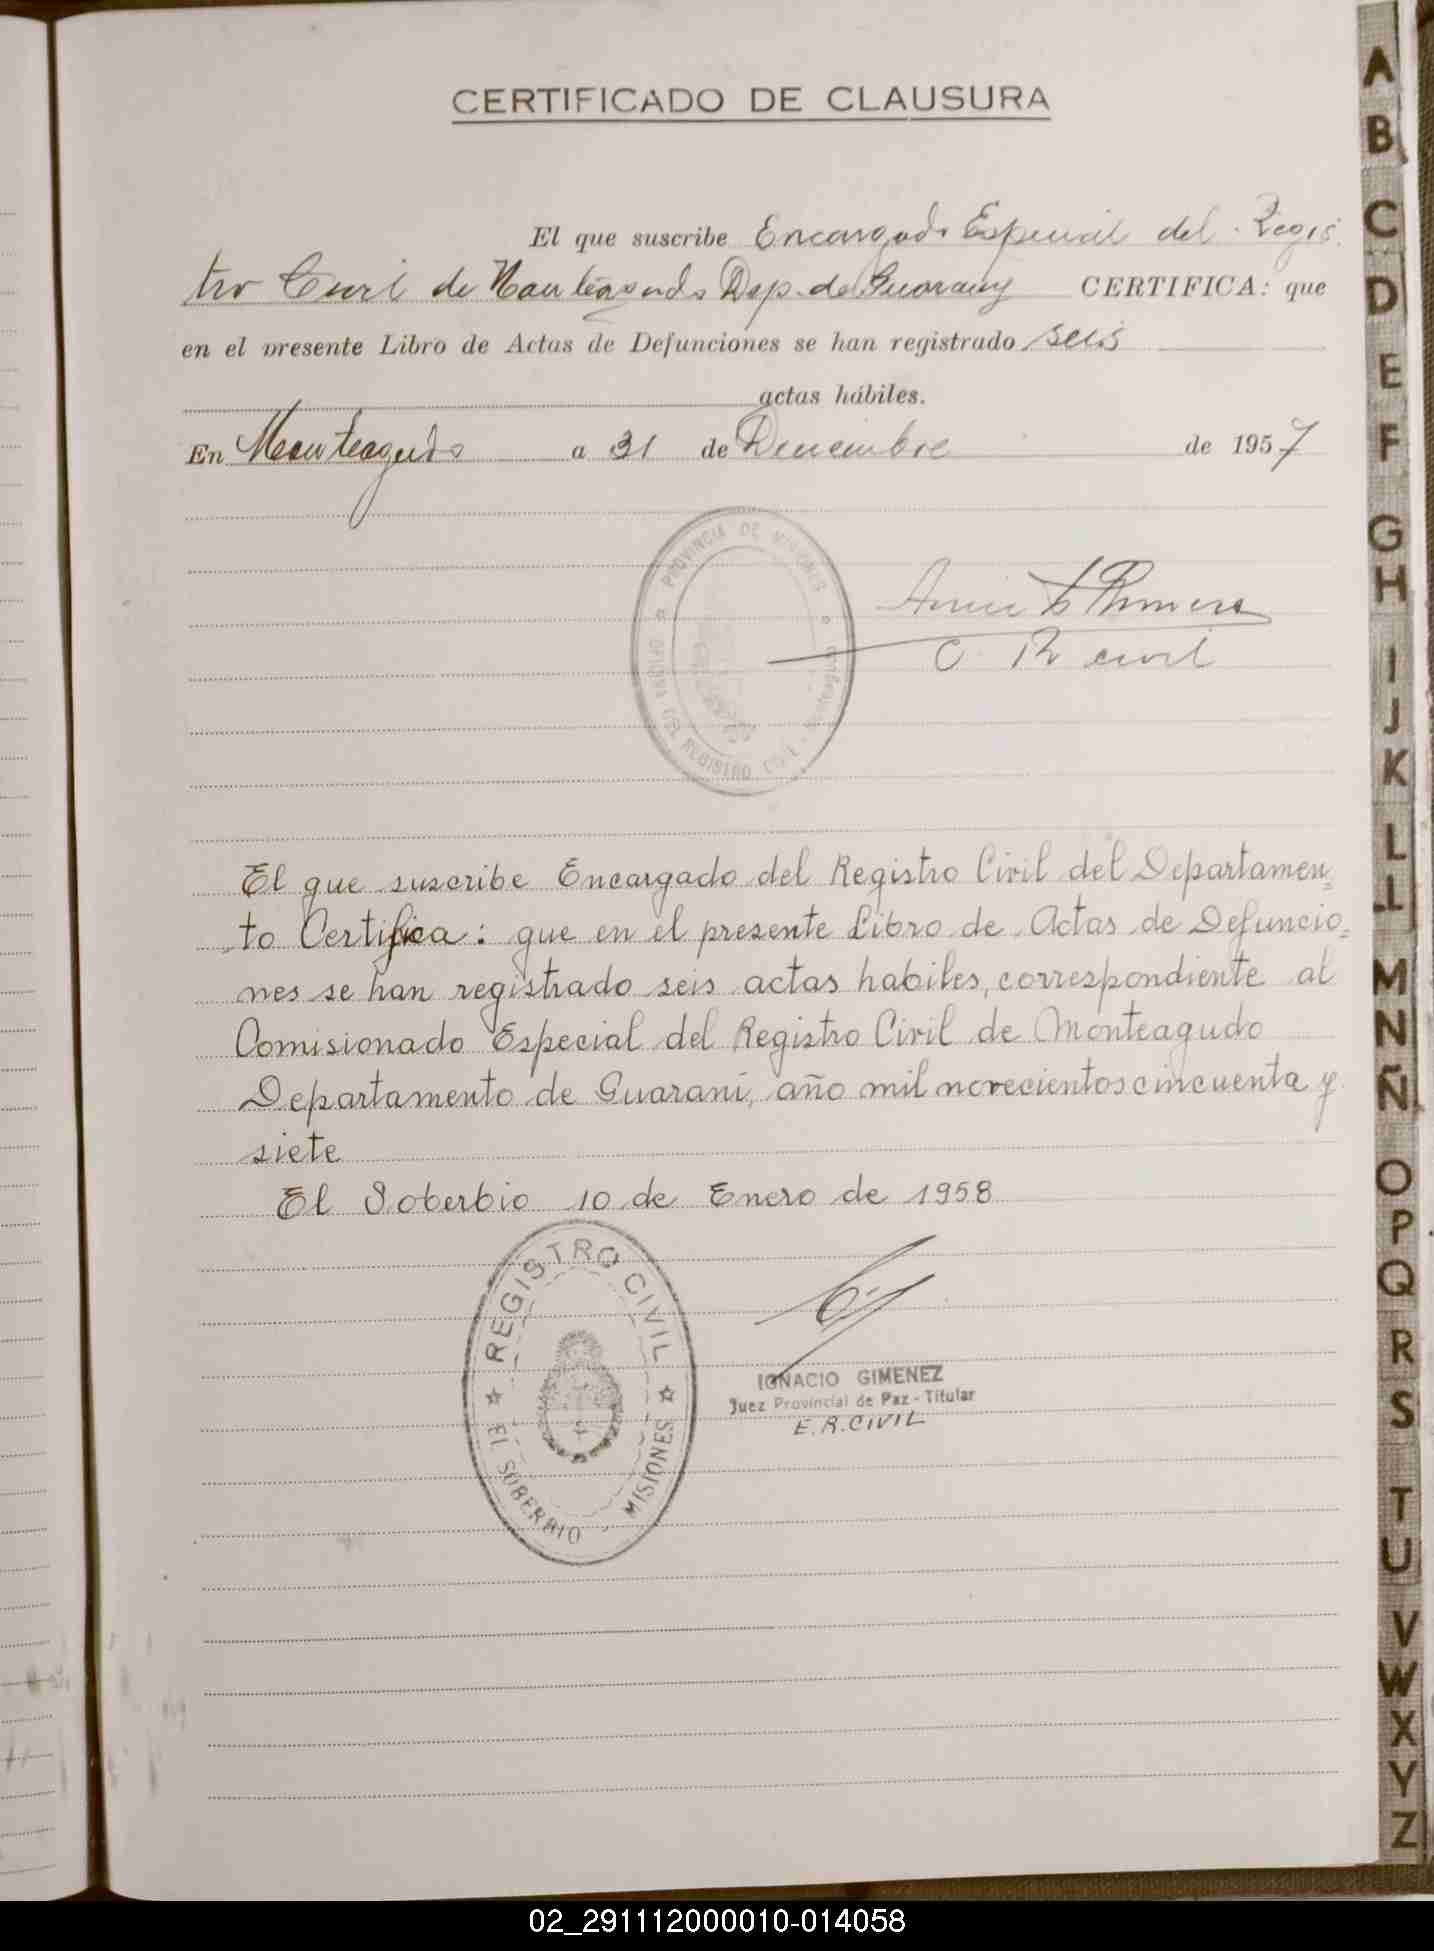 CERTIFICADO DE CLAUSURA
El que suscribe Encargado Especial del Regis
tro Civil de Monteagudo Dep. de Guarany CERTIFICA: que
en el presente Libro de Actas de Defunciones se han registrado seis
actas hábiles.
En Monteagudo a 31 de Diciembre de 1957
PROVINCIA DE MISIONES
OFICINA DEL REGISTRO CIVIL
civil
El que suscribe Encargado del Registro Civil del Departamen=
to Certifica: que en el presente Libro de Actas de Defuncio=
nes se han registrado seis actas habiles, correspondiente al
Comisionado Especial del Registro Civil de Monteagudo
Departamento de Guaraní, año mil novecientos cincuenta y
siete
El Soberbio 10 de Enero de 1958
REGISTRO CIVIL
EL SOBERBIO, MISIONES
IGNACIO GIMENEZ
Juez Provincial de Paz - Titular
E. R. CIVIL
A
B
C
D
E
F
G
H
I
J
K
L
LL
M
N
Ñ
O
P
Q
R
S
T
U
V
W
X
Y
Z
02_291112000010-014058